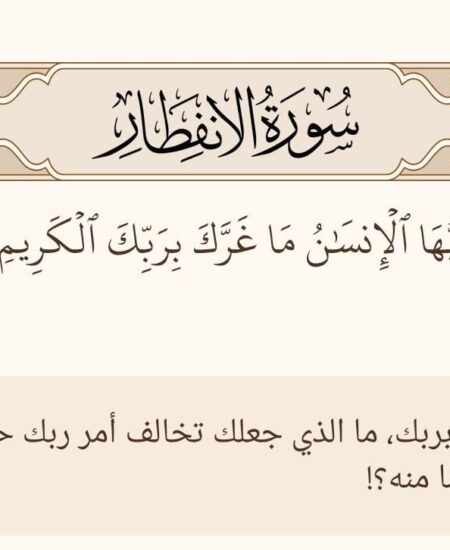 سُورَةُ الانفِطَارِ
ٱلْإِنسَـٰنُ مَا غَرَّكَ بِرَبِّكَ ٱلْكَرِيمِ
بربك، ما الذي جعلك تخالف أمر ربك
منه؟!